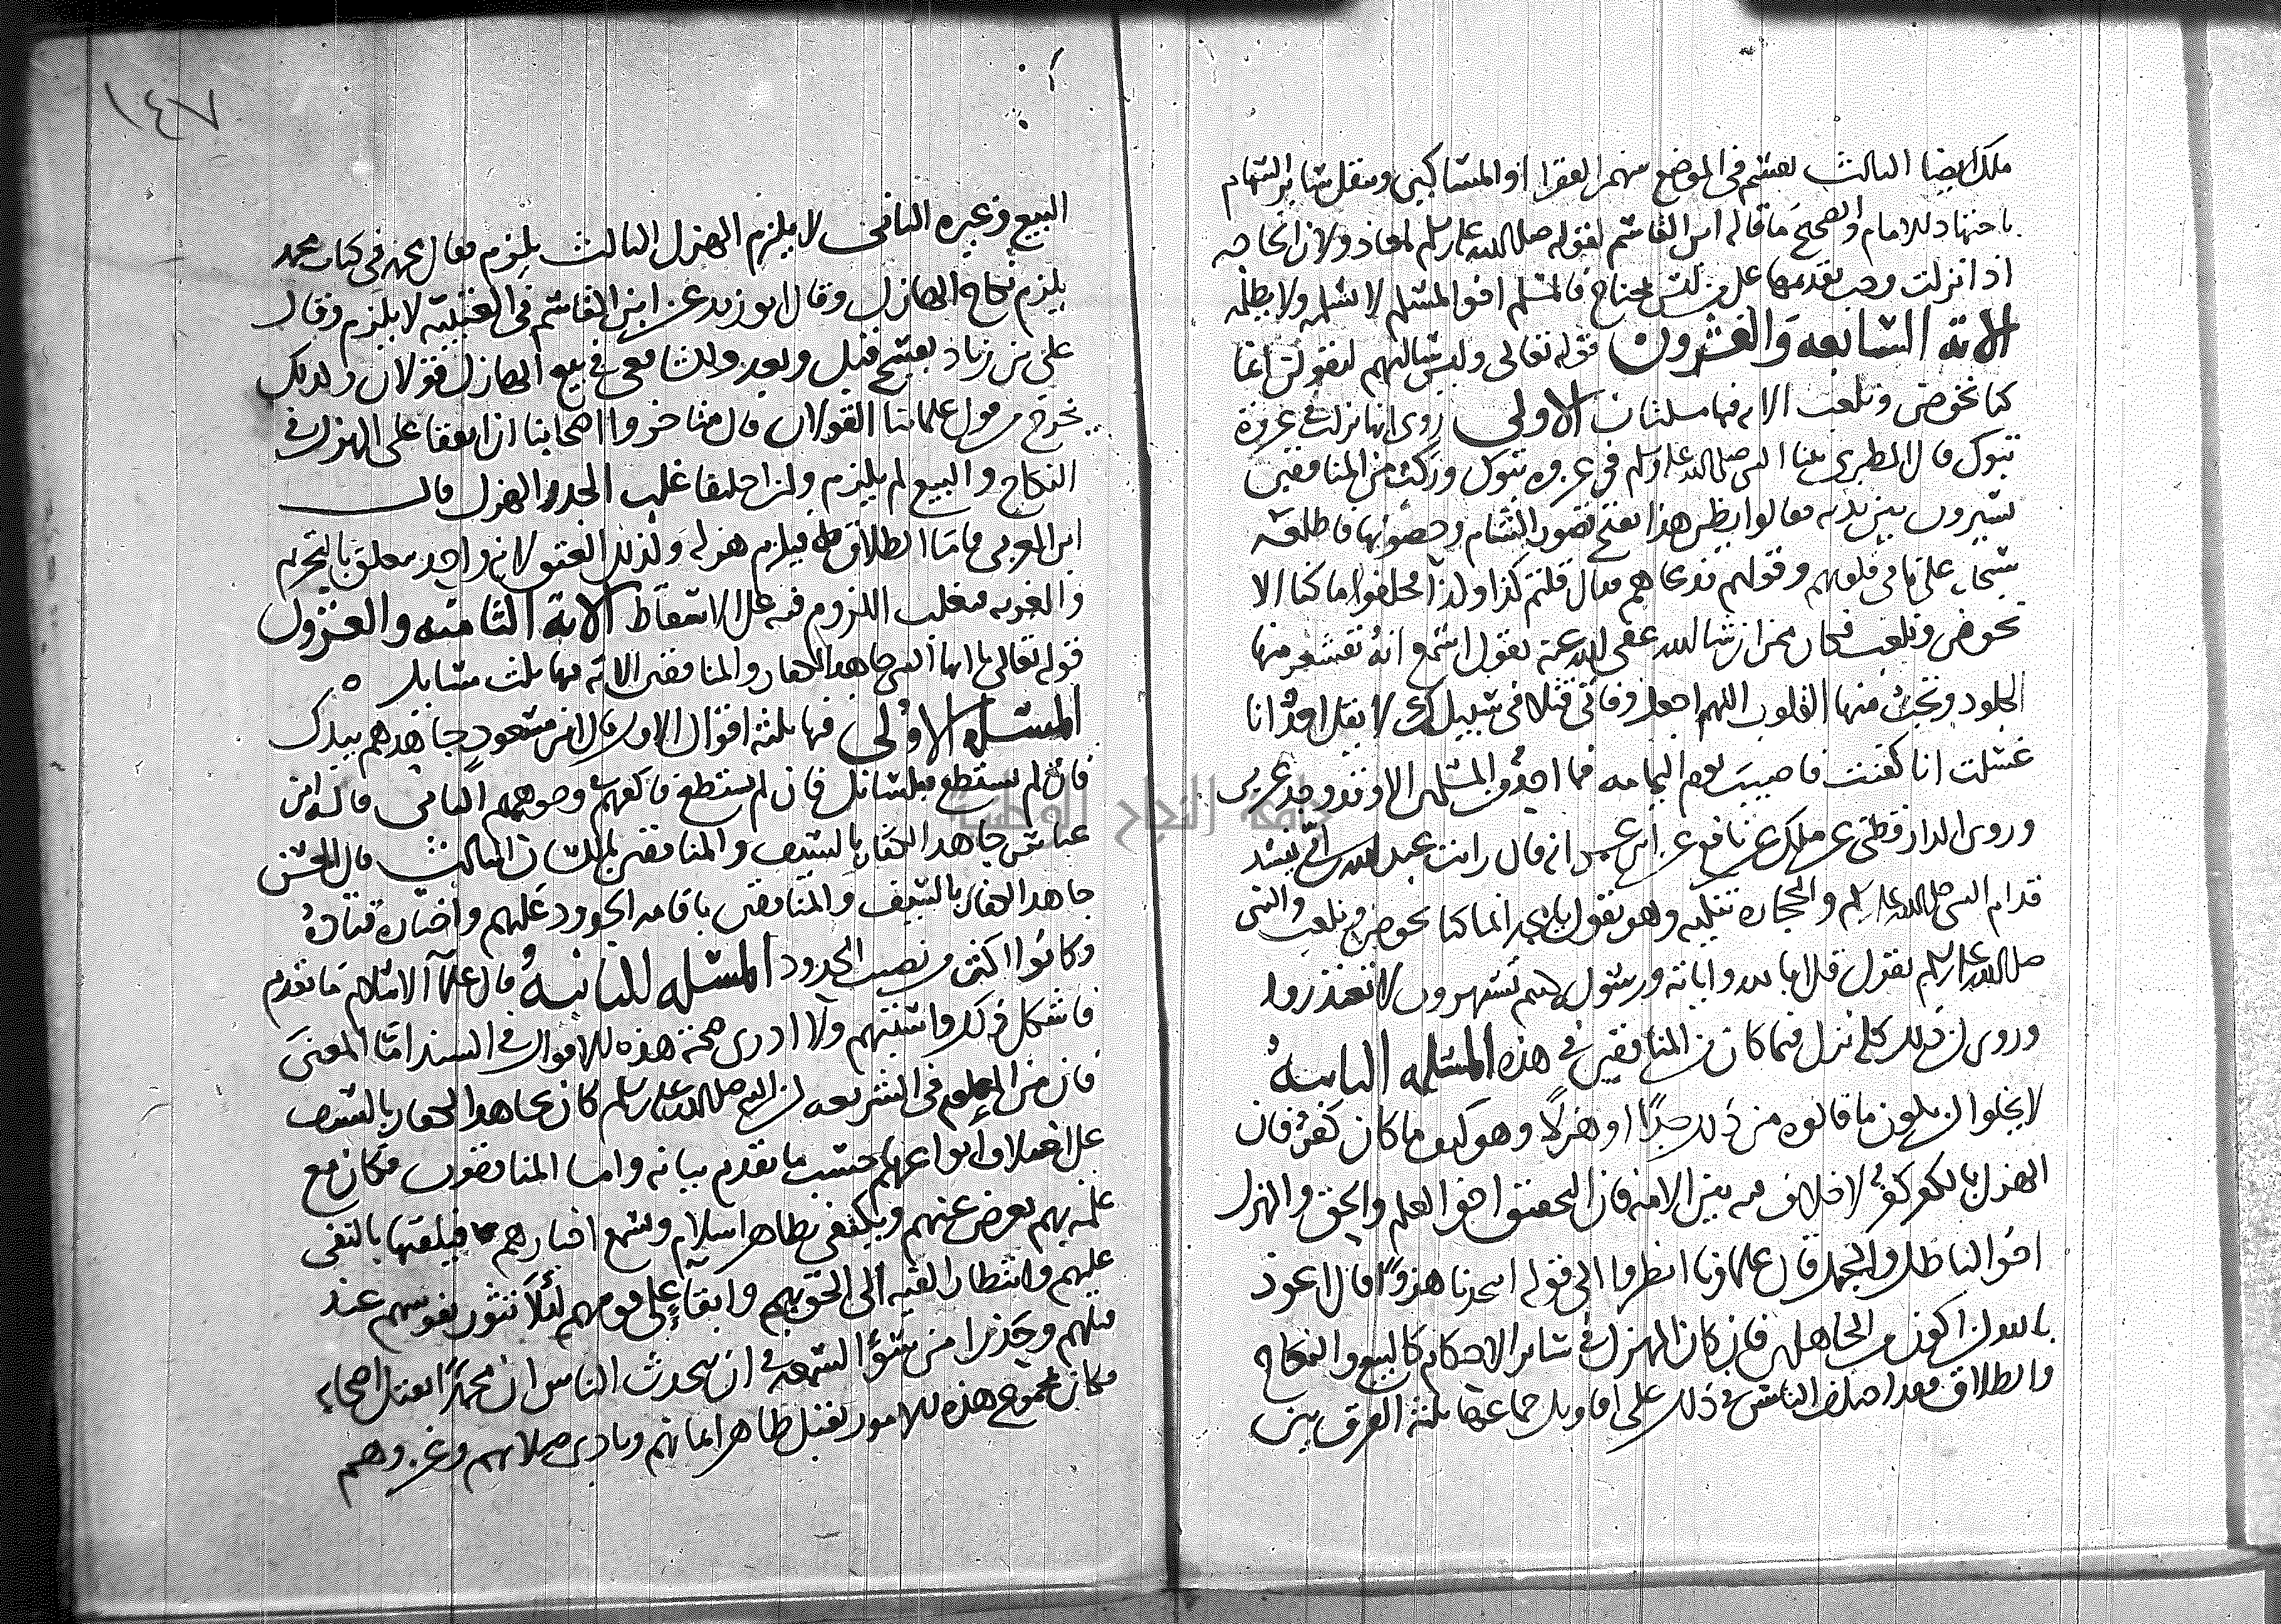 ملك ايضا الثالث يقسم في الموضع سهم الفقرا والمساكين وينقل سائر السهام
باجتهاد الامام والصحيح ما قاله ابن القاسم لقوله صلى الله عليه وسلم لمعاذ ولان الحاجه
اذا نزلت وجب تقديمها على من ليس بمحتاج فالمسلم اخو المسلم لا يسلمه ولا يظلمه
الايه السابعه والعشرون قوله تعالى ولين سالتهم ليقولن انما
كنا نخوض ونلعب الايه فيها مسلتان الاولى روى انها نزلت في غزوة
تبوك قال الطبري بينا النبي صلى الله عليه وسلم في غزوه تبوك وركب من المنافقين
يسيرون بين يديه فقالوا يظن هذا يفتح قصور الشام وحصونها فاطلعه
الله سبحانه على ما في قلوبهم وقولهم فدعاهم فقال قلتم كذا وكذا فحلفوا ما كنا الا
نخوض ونلعب فكان ممن ان شا الله عفى الله عنه يقول اسمع ايه تقشعر منها
الجلود وتجب منها القلوب اللهم اجعل وفاتي قتلا في سبيلك لا يقل احد انا
غسلت انا كفنت فاصيب يوم اليمامه فما احد من المسلمين الا وقد وجد غيره
وروى الدارقطني عن ملك عن نافع عن ابن عمر انه قال رايت عبد الله بن ابي يشتد
قدام النبي صلى الله عليه وسلم والحجاره تنكبه وهو يقول يا محمد انما كنا نخوض ونلعب والنبي
صلى الله عليه وسلم يقول قل ابالله واياته ورسوله كنتم تستهزون لا تعتذروا
وروى ان ذلك كله نزل فيما كان من المنافقين في هذه المسله الثانيه
لا يخلوا ان يكون ما قالوه من ذلك جدا او هزلا وهو كيف ما كان كفر فان
الهزل بالكفر كفر لا خلاف فيه بين الامه فان التحقيق اخو العلم والحق والهزل
اخو الباطل والجهل قال علماونا انظروا الى قوله اتتخذنا هزوا قال اعوذ
بالله ان اكون من الجاهلين فان كان الهزل في سائر الاحكام كالبيع والنكاح
والطلاق فقد اختلف الناس في ذلك على اقاويل جماعها ثلثه الفرق بين
٧٤١
البيع وغيره الثاني لا يلزم الهزل الثالث يلزم فقال محمد في كتاب محمد
يلزم نكاح الهازل وقال ابو زيد عن ابن القاسم في العتبيه لا يلزم وقال
على بن زياد يفسخ قبل وبعد وللشافعي في بيع الهازل قولان وكذلك
يخرج من قول علمائنا القولان قال متاخروا اصحابنا ان اتفقا على الهزل في
النكاح والبيع لم يلزم وان اختلفا غلب الجد الهزل قال
ابن العربي فاما الطلاق فيلزم هزله وكذلك العتق لانه واحد يتعلق بالتحريم
والقربه فيغلب اللزوم فيه على الاسقاط الايه الثامنه والعشرون
قوله تعالى يا ايها النبي جاهد الكفار والمنافقين الايه فيها ثلث مسائل ه
المسله الاولى فيها ثلثه اقوال الاول قال ابن مسعود جاهدهم بيدك
فان لم تستطع فبلسانك فان لم تستطع فاكفهر في وجوههم الثاني قال ابن
عباس جاهد الكفار بالسيف والمنافقين باللسان الثالث قال الحسن
جاهد الكفار بالسيف والمنافقين باقامه الحدود عليهم واختاره قتادة
وكانوا اكثر من يصيب الحدود المسله الثانيه قال علما الاسلام ما تقدم
فاشكل ذلك واستبهم ولا ادرى صحة هذه الاقوال في السند اما المعنى
فان من المعلوم في الشريعه ان النبي صلى الله عليه وسلم كان يجاهد الكفار بالسيف
على اختلاف انواعهم حسب ما تقدم بيانه واما المنافقون فكان مع
علمه بهم يعرض عنهم ويكتفي بظاهر اسلامهم ويسمع اخبارهم فيلقيها بالبقى
عليهم وانتظار الفيه الى الحق بهم وابقاء على قومهم لئلا تثور نفوسهم عند
قتلهم وحذرا من سوء السمعه في ان يتحدث الناس ان محمدا يقتل اصحابه
فكان مجموع هذه الامور يقبل ظاهر ايمانهم وبادى صلاتهم وغزوهم
جامعة النجاح الوطنية